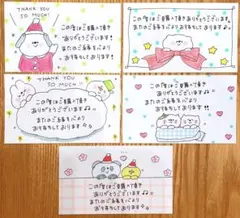 THANK YOU
SO MUCH!
この度はご購入頂き
ありがとうございます
またのご縁を心より
お待ちしております
この度はご購入頂き
ありがとうございます
またのご縁を心より
お待ちしております
THANK YOU
SO MUCH!
この度はご購入頂き
ありがとうございます
またのご縁を心より
お待ちしております
この度はご購入頂き
ありがとうございます
またのご縁を心より
お待ちしております
この度はご購入頂き
ありがとうございます
またのご縁を心より
お待ちしております